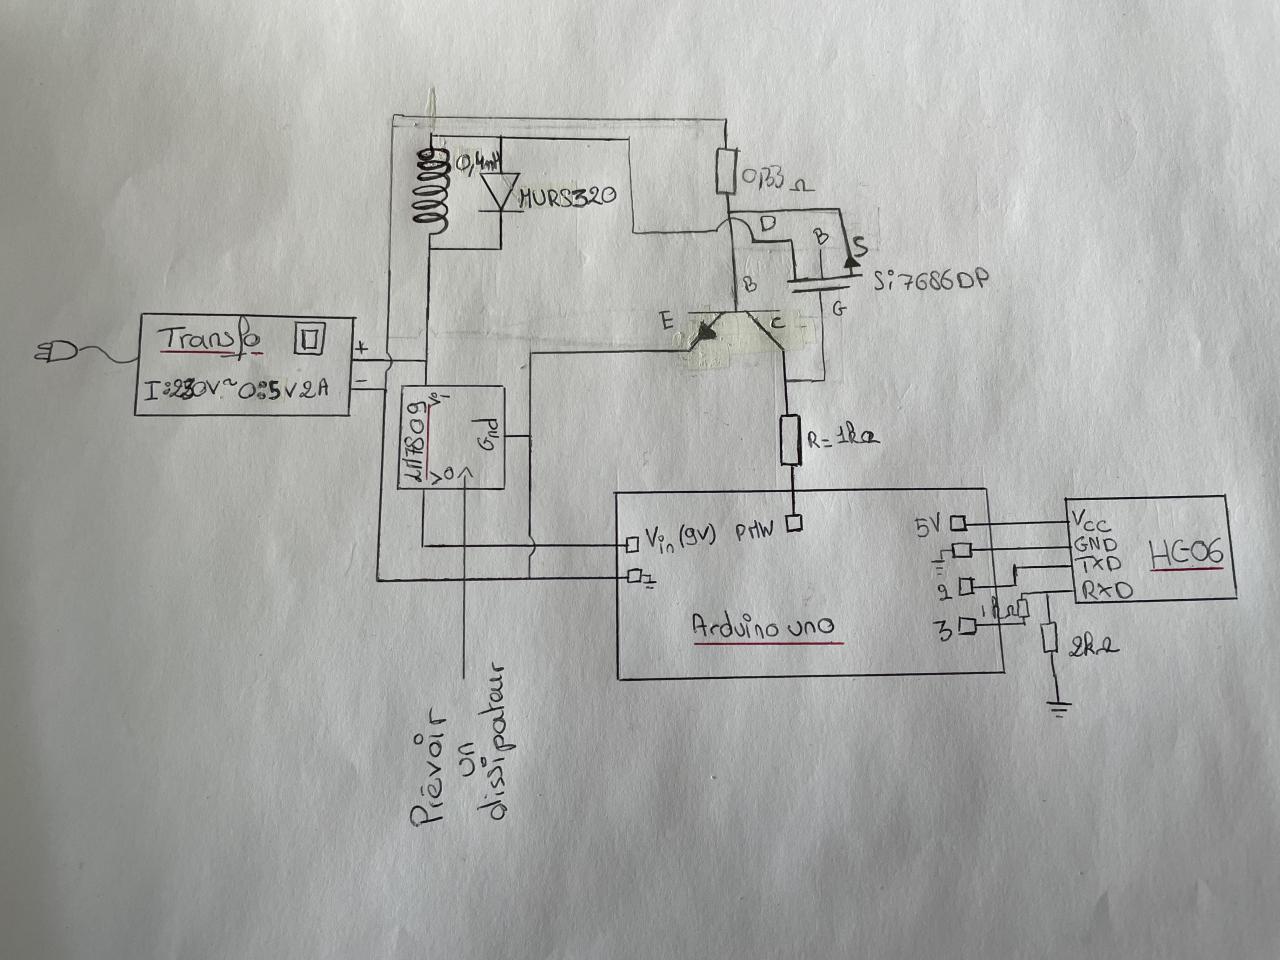 0,4mH
MURS320
0,33 Ω
D
B
S
Si7686DP
B
G
E
C
Transfo
+
-
I:230V~ O:5V 2A
LM7809
Vi
Gnd
VO
R=1kΩ
Vin (9V)
PMW
Arduino uno
5V
2
3
1kΩ
2kΩ
Vcc
GND
TXD
RXD
HC-06
Prévoir
un
dissipateur